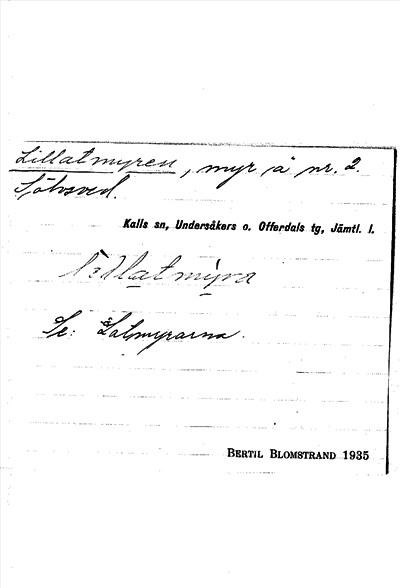 Lillatmyren, myr å nr. 2.
Kalls sn, Undersåkers o. Offerdals tg, Jämtl. l.
Se: Låtmyrarna.
BERTIL BLOMSTRAND 1935